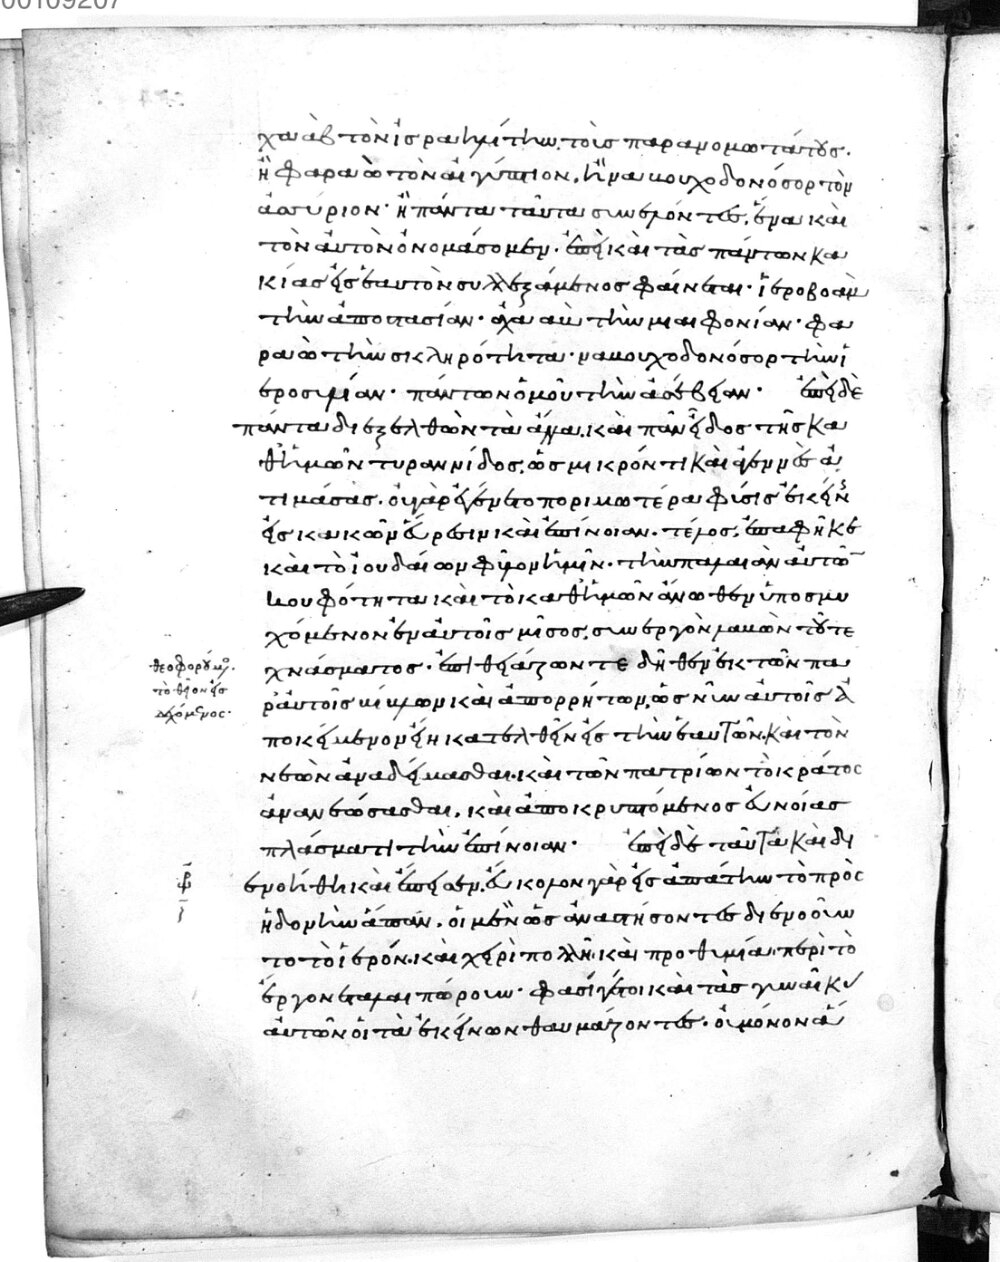 00109207
χαὰβ τὸν ἰσραηλίτην. τοῖς παρανομωτάτοις.
ἢ φαραὼ τὸν αἰγύπτιον. ἢ ναβουχοδονόσορ τὸν
ἀσσύριον· ἢ πάντα ταῦτα συνελόντες, ἕνα καὶ
τὸν αὐτὸν ὀνομάσομεν. ἐπεὶ καὶ τὰς πάντων κα
κίας εἰς ἑαυτὸν συλλεξάμενος φαίνεται· ἱεροβοὰμ
τὴν ἀποστασίαν· ἀχαὰβ τὴν μιαιφονίαν· φα
ραὼ τὴν σκληρότητα· ναβουχοδονόσορ τὴν ἱ
εροσυλίαν· πάντων ὁμοῦ τὴν ἀσέβειαν· ἐπεὶ δὲ
πάντα διεξελθὼν τὰ ἄλλα. καὶ πᾶν εἶδος τῆς κα
θ' ἡμῶν τυραννίδος, ὡς μικρόν τι καὶ ἀγεννὲς ἀ
τιμάσας. οὐ γὰρ ἐγένετο ποριμωτέρα φύσις ἐκείνης
εἰς κακῶν εὕρεσιν καὶ ἐπίνοιαν. τέλος, ἐπαφῆκε
καὶ τὸ ἰουδαίων φῦλον ἡμῖν· τὴν παλαιὰν αὐτῶν
κουφότητα καὶ τὸ καθ' ἡμῶν ἄνωθεν ὑποσμυ
χόμενον ἐν αὐτοῖς μῖσος, συνεργὸν λαβὼν τοῦ τε
χνάσματος. ἐπιθειάζων τε δῆθεν ἐκ τῶν πα
ρ' αὐτοῖς βίβλων καὶ ἀπορρήτων, ὡς νῦν αὐτοῖς ἀ
ποκείμενον εἴη κατελθεῖν εἰς τὴν ἑαυτῶν. καὶ τὸν
νεὼν ἀναδείμασθαι. καὶ τῶν πατρίων τὸ κράτος
ἀνανεώσασθαι. καὶ ἀποκρυπτόμενος εὐνοίας
πλάσματι τὴν ἐπίνοιαν· ἐπεὶ δὲ ταῦτα καὶ δι
ενοήθη καὶ ἔπεισεν. εὔκολον γὰρ εἰς ἀπάτην τὸ πρὸς
ἡδονὴν ἅπαν. οἱ μὲν ὡς ἀναστήσοντες διενοοῦν
το τὸ ἱερόν. καὶ χειρὶ πολλῇ. καὶ προθυμίᾳ. περὶ τὸ
ἔργον ἐταλαιπώρουν· φασί γέ τοι καὶ τὰς γυναῖκας
αὐτῶν οἱ τὰ ἐκείνων θαυμάζοντες. οὐ μόνον ἅ
θεοφορούμ.
τὸ θεῖον εἰσ
δεχόμενος·